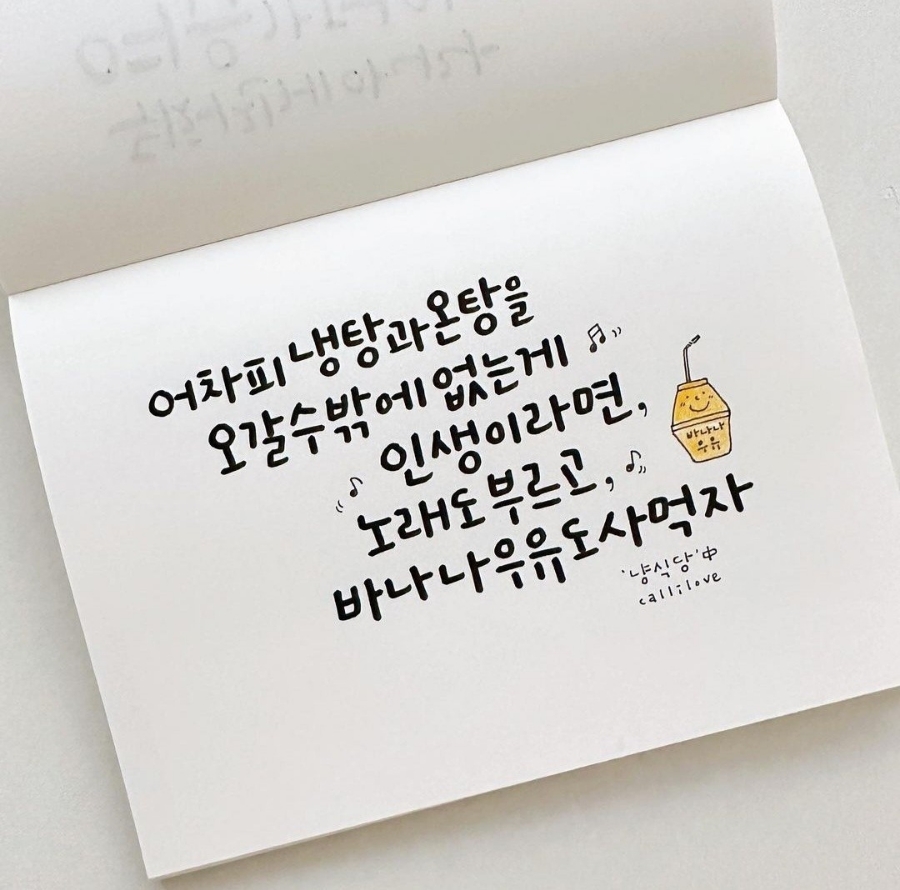 어차피 냉탕과 온탕을
오갈 수밖에 없는게
인생이라면,
노래도 부르고,
바나나우유도 사먹자
바나나
우유
'냥식당'中
callilove